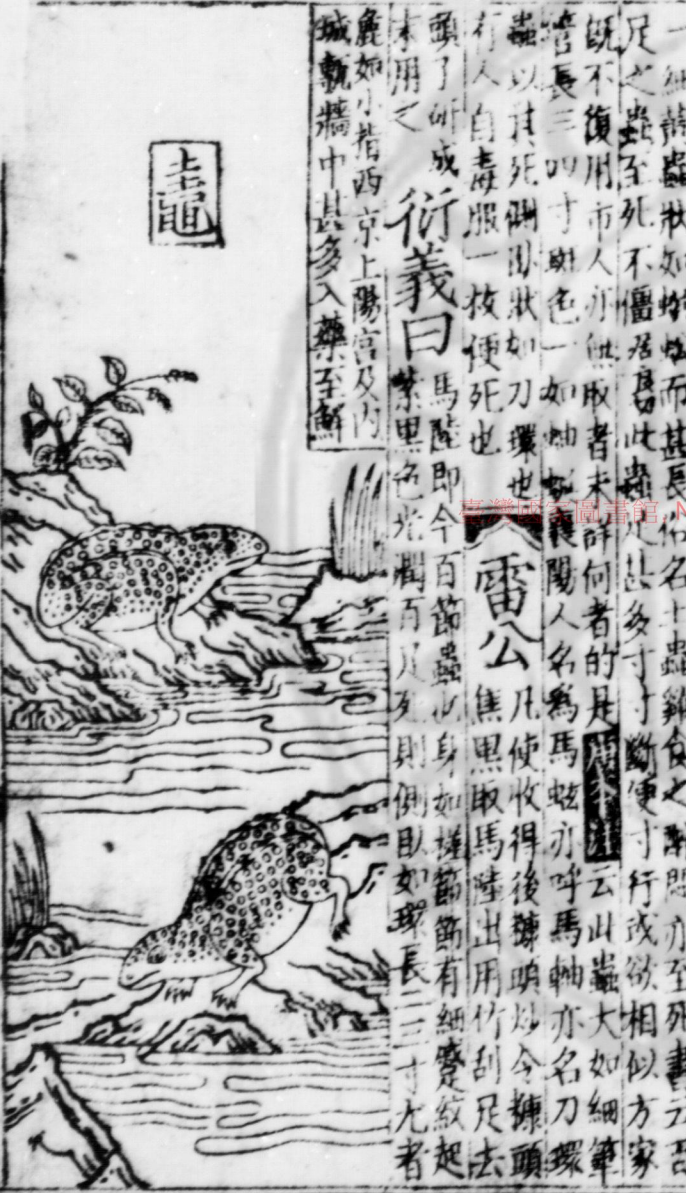 一細黃蟲狀如蜈蚣而甚長俗名土蟲雞食之醉悶亦至死書云百
足之蟲至死不僵此蟲甚多寸寸斷便寸行或欲相似方家
既不復用市人亦無取者未詳何者的是云此蟲大如細筆
管長三四寸斑色一如蚰蜒襄陽人名為馬蚿亦呼馬軸亦名刀環
蟲以其死側臥狀如刀環也
有人自毒服一枚便死也 雷公 凡使收得後糠頭炒令糠頭
焦黑取馬陸出用竹刮足去
頭了研成
末用之 衍義曰馬陸即今百節蟲也身如槎節節有細蹙紋起
紫黑色光潤百足死則側臥如環長二三寸尤者
麄如小指西京上陽宮及內
城甎牆中甚多入藥至鮮
臺灣國家圖書館